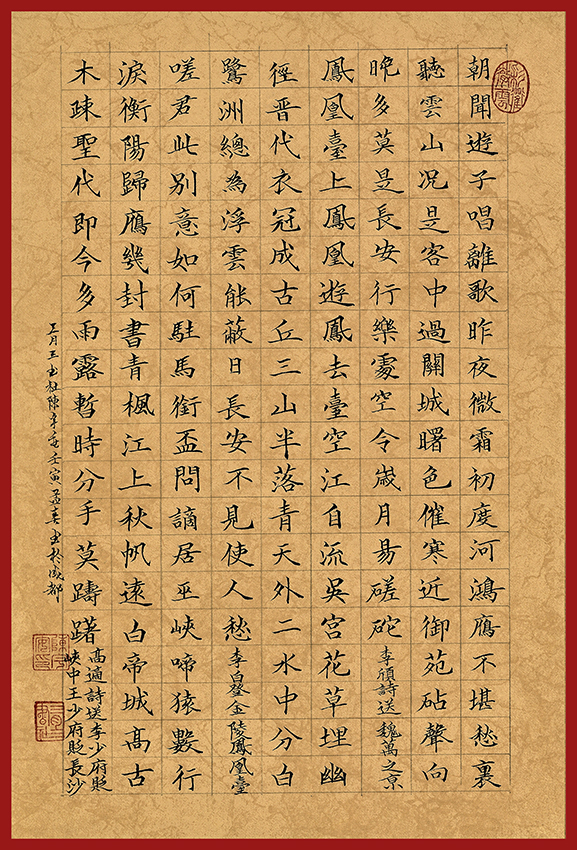 朝聞遊子唱離歌昨夜微霜初度河鴻鴈不堪愁裏
聽雲山况是客中過關城曙色催寒近御苑砧聲向
晚多莫是長安行樂處空令歲月易磋砣 李頎詩送魏萬之京
鳳凰臺上鳳凰遊鳳去臺空江自流吳宮花草埋幽
徑晋代衣冠成古丘三山半落青天外二水中分白
鷺洲總為浮雲能蔽日長安不見使人愁 李白登金陵鳳凰臺
嗟君此別意如何駐馬銜盃問謫居巫峽啼猿數行
淚衡陽歸鴈幾封書青楓江上秋帆遠白帝城高古
木疎聖代即今多雨露暫時分手莫躊躇
高適詩送李少府貶
峽中王少府貶長沙
壬寅孟春書於成都